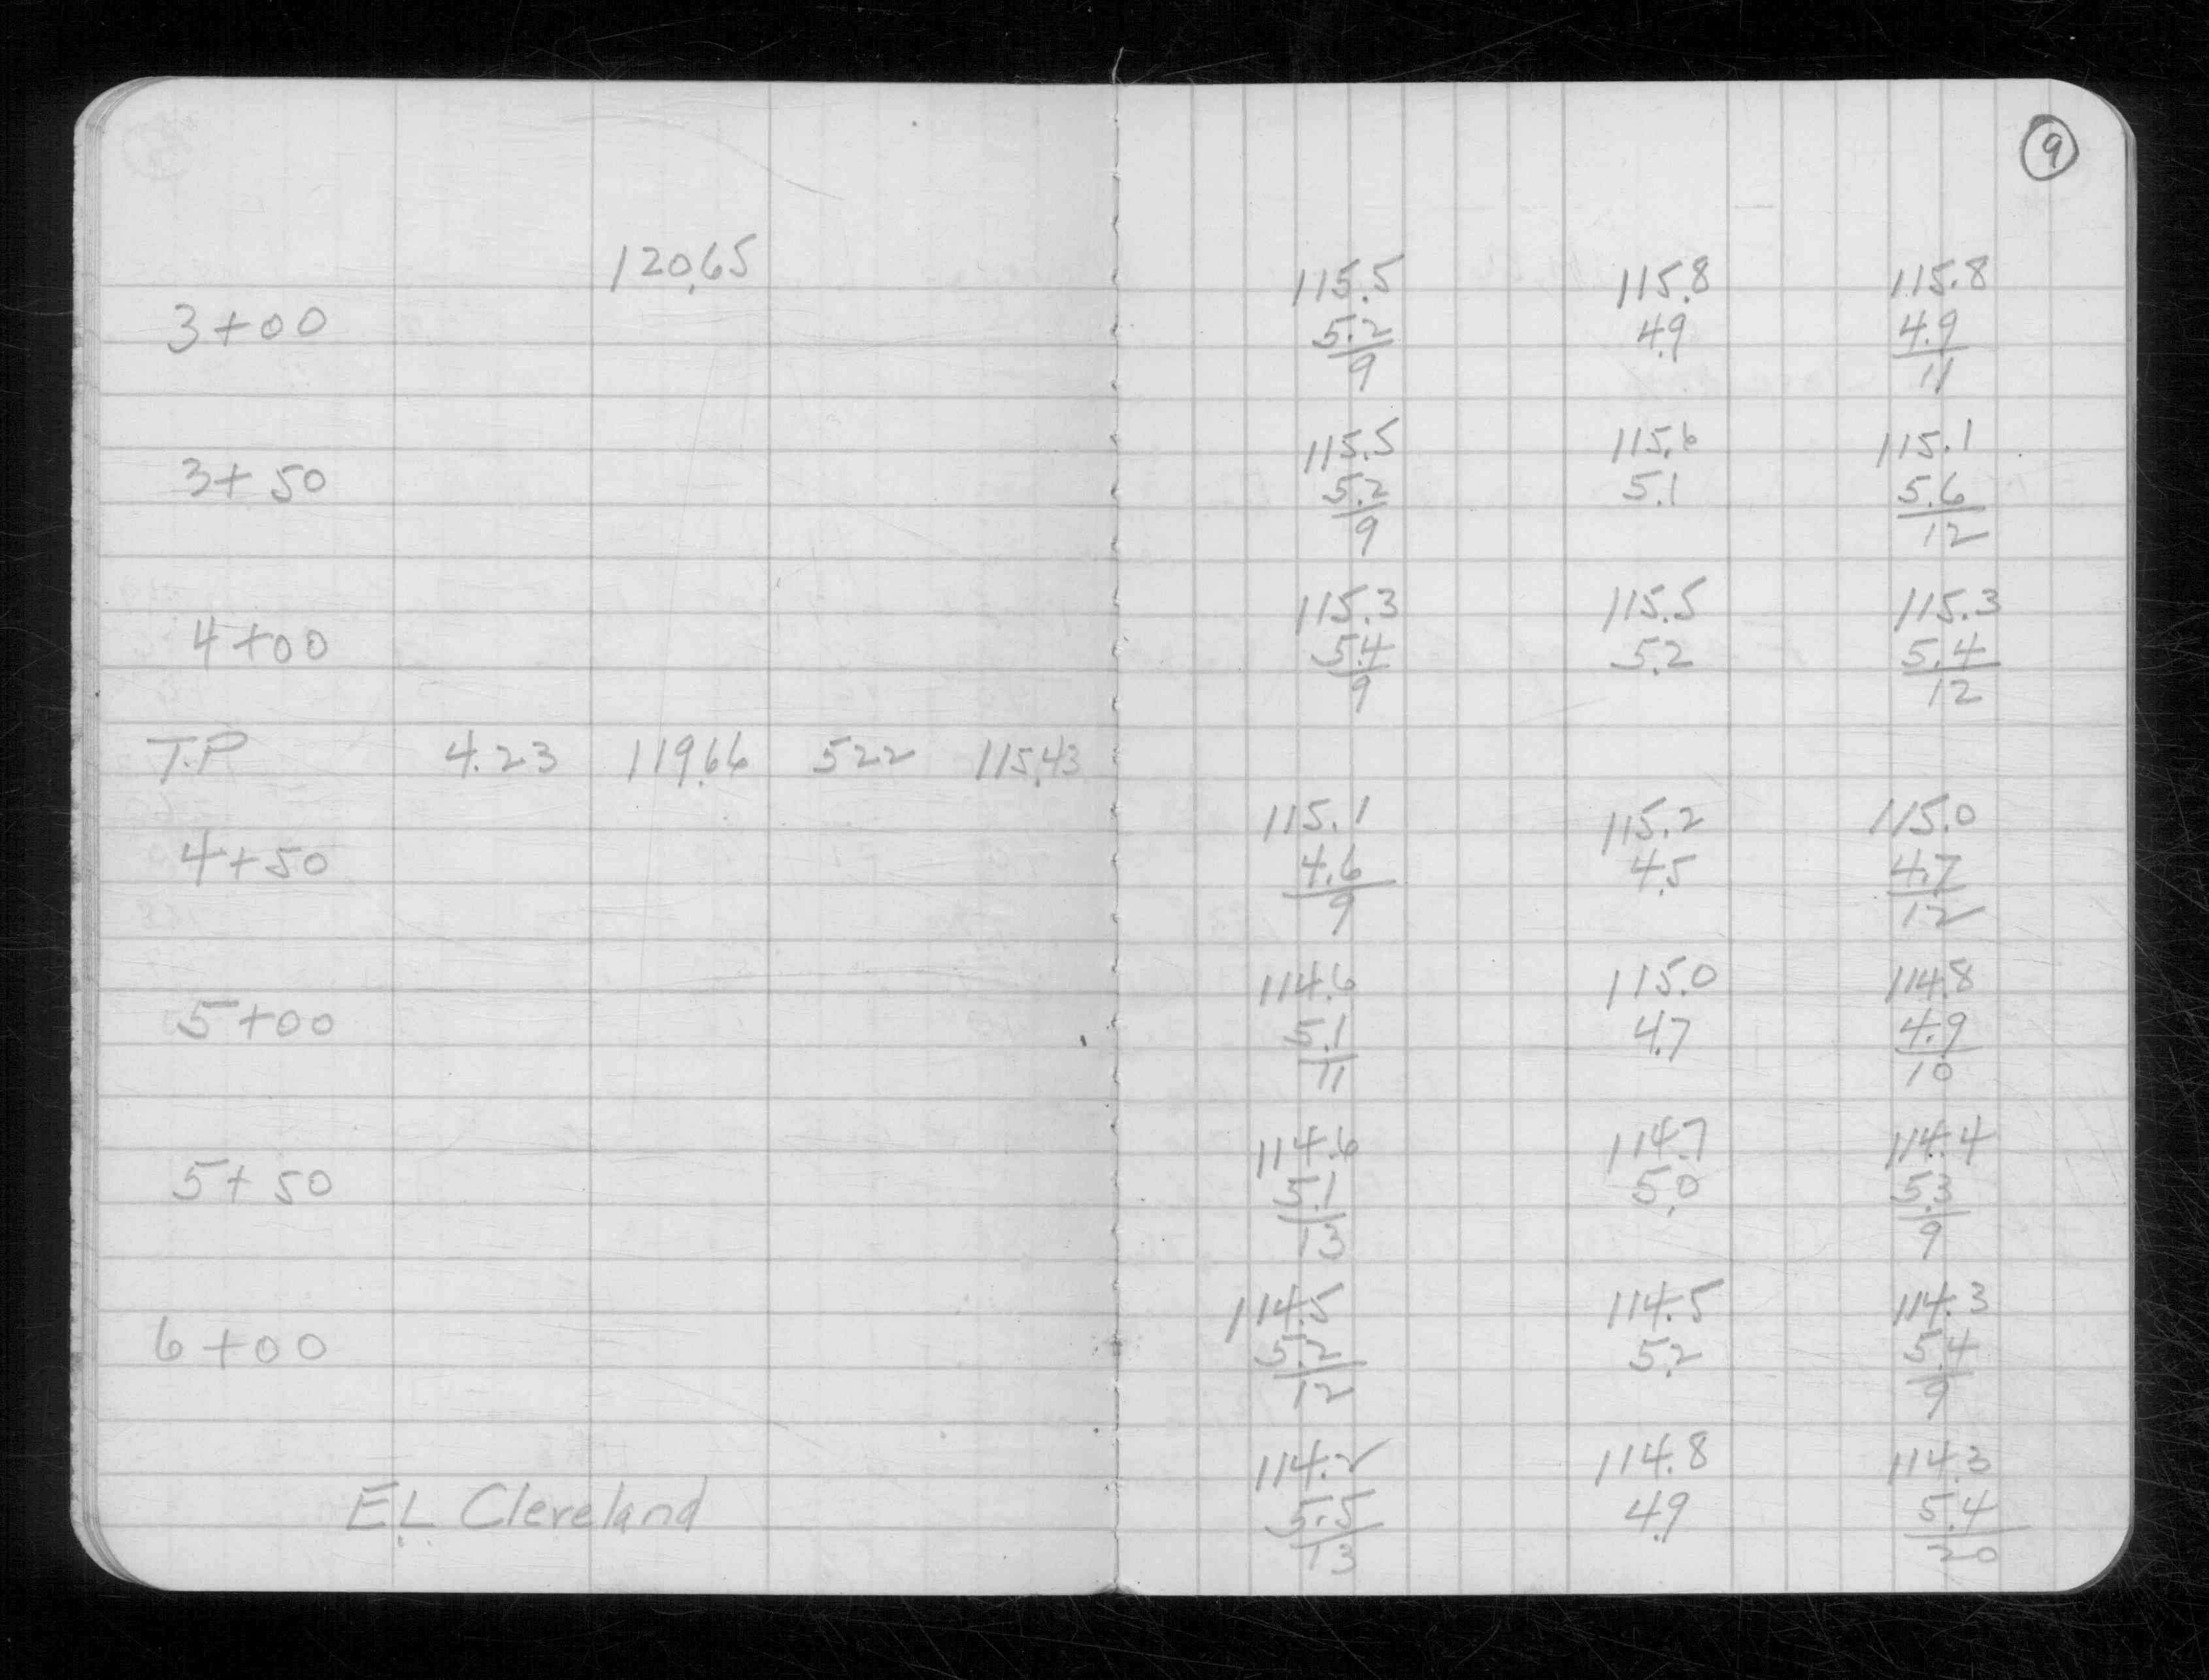 9
120.65
115.5 115.8 115.8
3+00 5.2 4.9 4.9
9 11
115.5 115.6 115.1
3+50 5.2 5.1 5.6
9 12
115.3 115.5 115.3
4+00 5.4 5.2 5.4
9 12
T.P 4.23 119.66 522 115.43
115.1 115.2 115.0
4+50 4.6 4.5 4.7
9 12
114.6 115.0 114.8
5+00 5.1 4.7 4.9
11 10
114.6 114.7 114.4
5+50 5.1 5.0 5.3
13 9
114.5 114.5 114.3
6+00 5.2 5.2 5.4
12 9
114.2 114.8 114.3
E.L. Cleveland 5.5 4.9 5.4
13 20